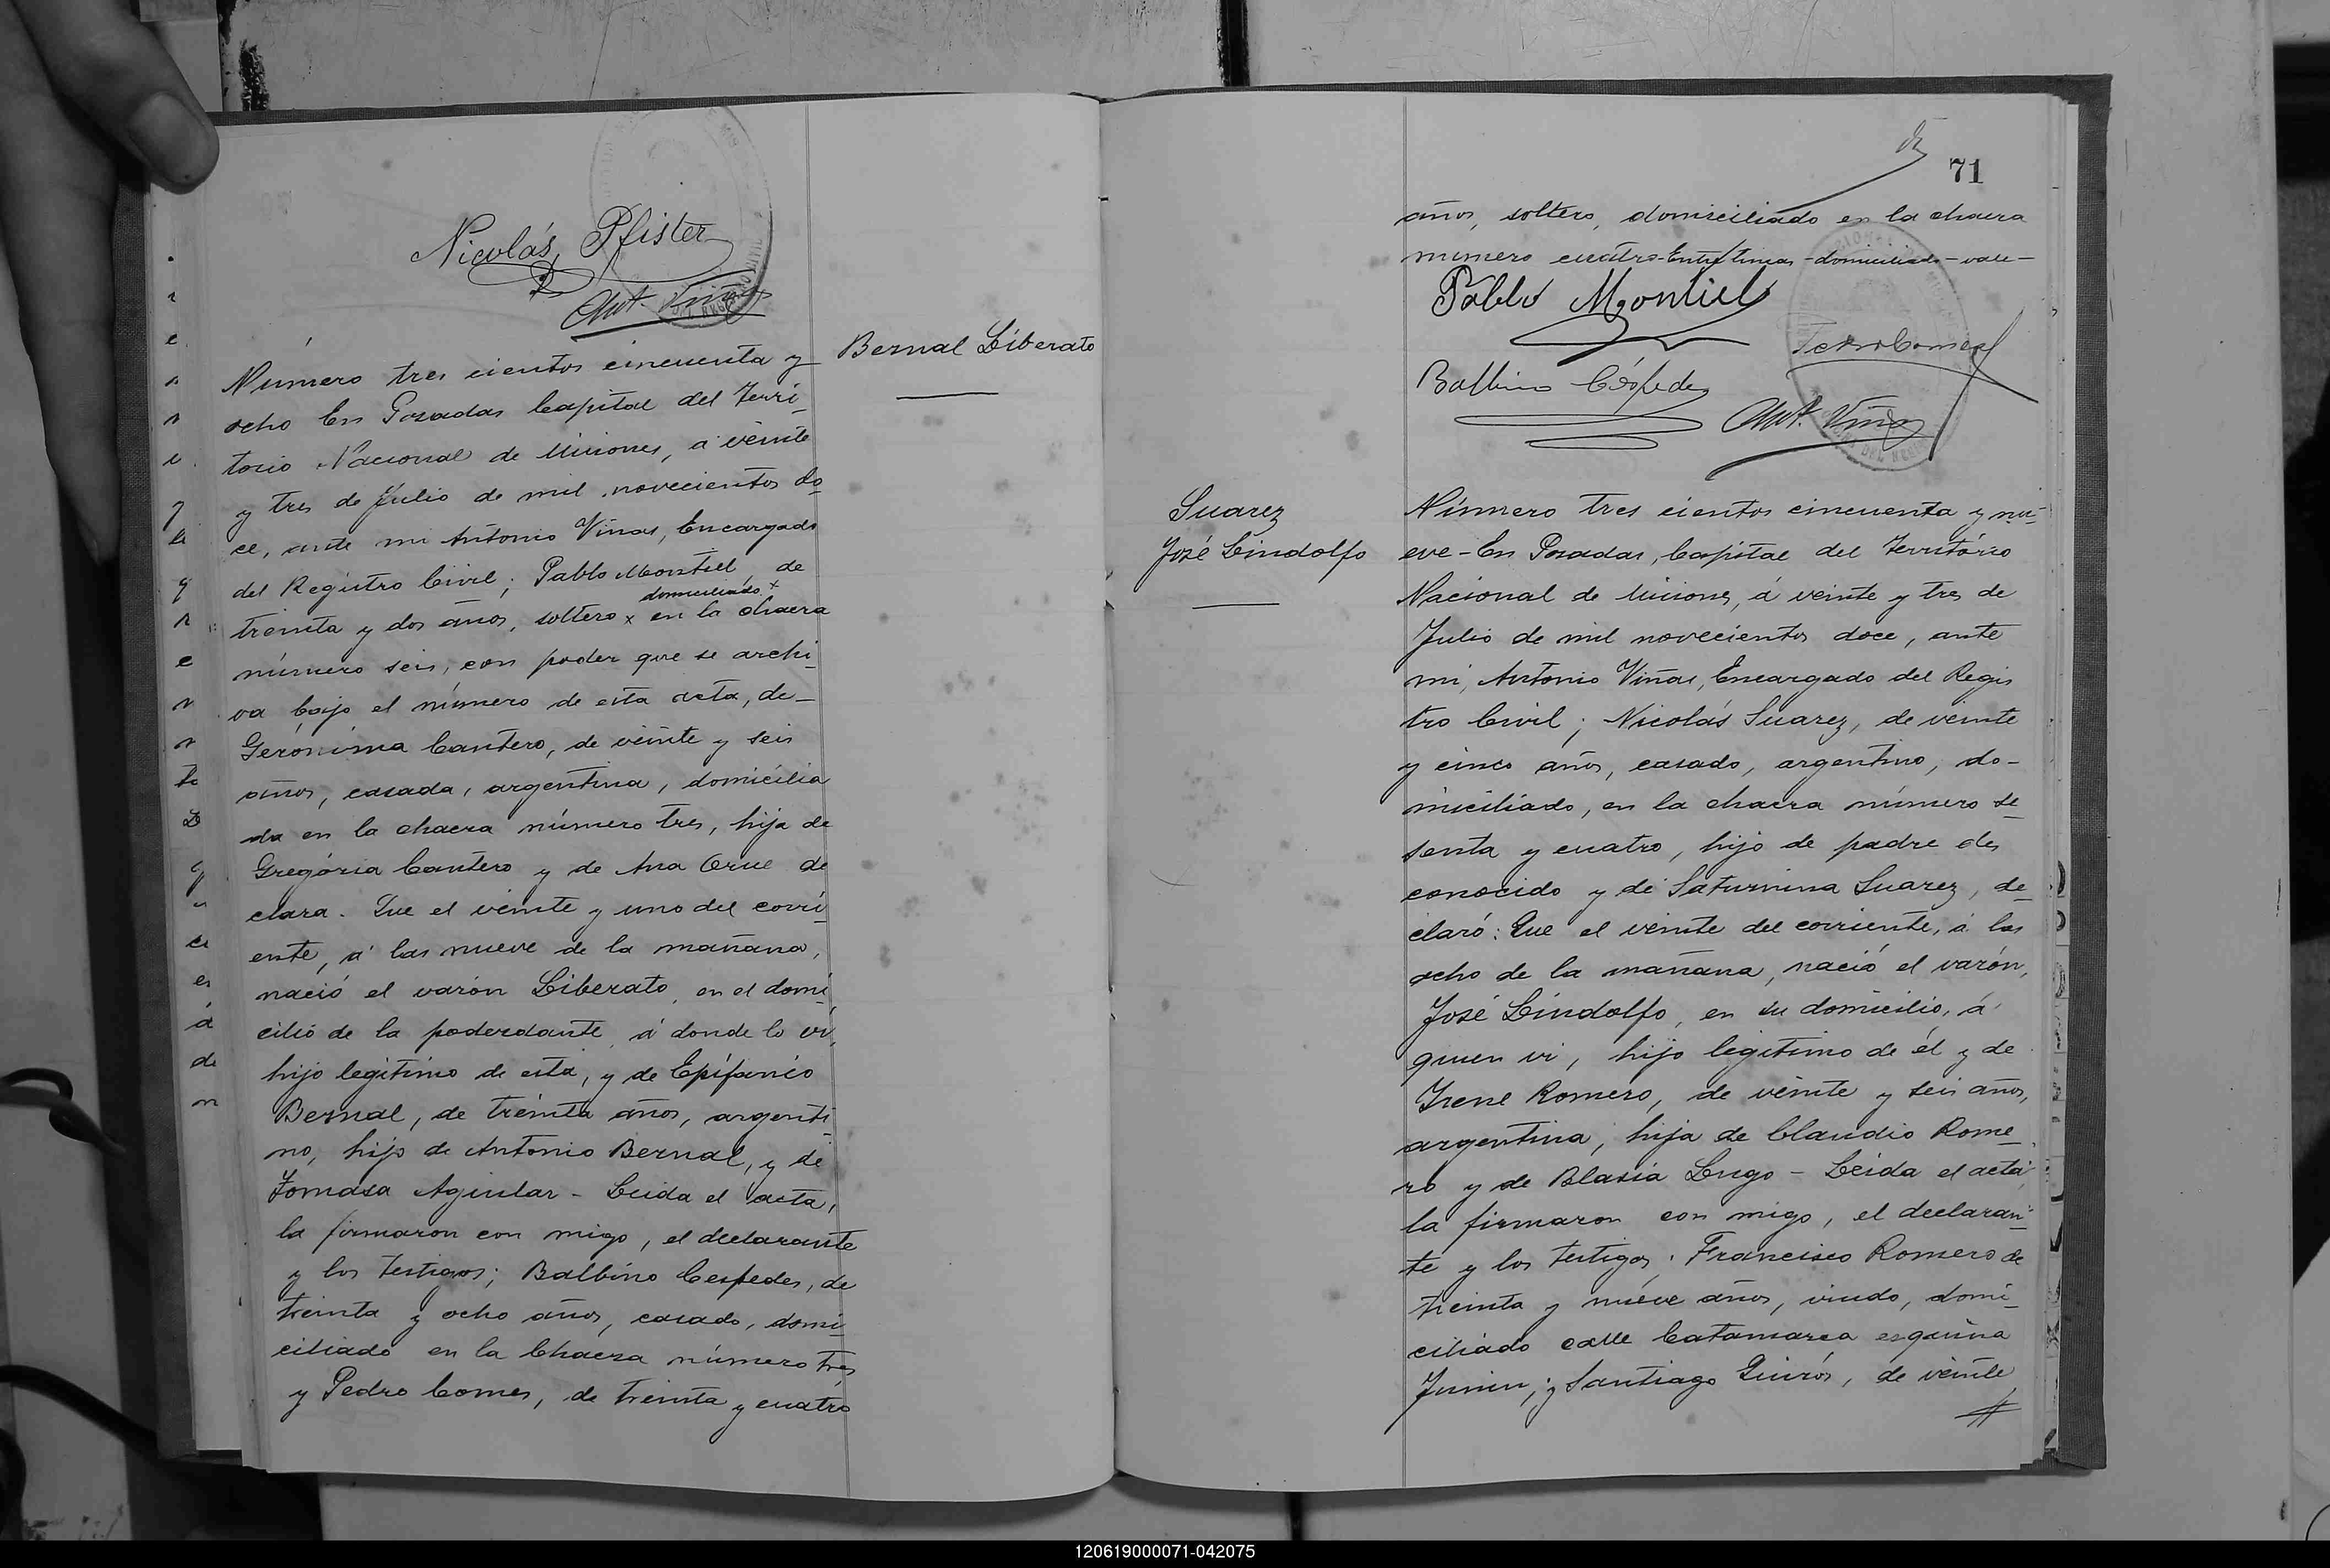 Nicolás Pfister
Ant. Viñas
Bernal Liberato
Número tres cientos cincuenta y
ocho En Posadas Capital del Terri-
torio Nacional de Misiones, á veinte
y tres de Julio de mil novecientos do-
ce, ante mi Antonio Viñas, Encargado
del Registro Civil; Pablo Montiel, de
domiciliado x
treinta y dos años, soltero x en la chacra
número seis, con poder que se archi-
va bajo el número de esta acta, de-
Gerónima Cantero, de veinte y seis
años, casada, argentina, domicilia
da en la chacra número tres, hija de
Gregória Cantero y de Ana Orue de
clara. Que el veinte y uno del corri-
ente, á las nueve de la mañana,
nació el varón Liberato, en el domi-
cilió de la poderdante, á donde lo vi,
hijo legítimo de esta, y de Epifanio
Bernal, de treinta años, argenti-
no, hijo de Antonio Bernal, y de
Tomasa Aguilar - Leida el acta,
la firmaron con migo, el declarante
y los testigos; Balbino Cespedes, de
treinta y ocho años, casado, domi-
ciliado en la Chacra número tres
y Pedro Gomes, de treinta y cuatro
71
años, soltero, domiciliado en la chacra
numero cuatro-Entre lineas-domiciliado-vale-
Pablo Montiel
Pedro Gomes
Balbino Céspedes
Ant. Viñas
Suarez
José Lindolfo
Número tres cientos cincuenta y nu-
eve-En Posadas, Capital del Território
Nacional de Misiones, á veinte y tres de
Julio de mil novecientos doce, ante
mi, Antonio Viñas, Encargado del Regis
tro Civil; Nicolás Suarez, de veinte
y cinco años, casado, argentino, do-
miciliado, en la chacra número se-
senta y cuatro, hijo de padre des
conocido y de Saturnina Suarez, de-
claró: Que el veinte del corriente, á las
ocho de la mañana, nació el varón,
José Lindolfo, en su domicilio, á
quien vi, hijo legítimo de él y de
Irene Romero, de veinte y seis años,
argentina, hija de Claudio Rome-
ro y de Blasia Lugo - Leida el acta,
la firmaron con migo, el declaran-
te y los testigos: Francisco Romero de
treinta y nueve años, viudo, domi-
ciliado calle Catamarca esquina
Junin; y Santiago Quirós, de veinte
120619000071-042075